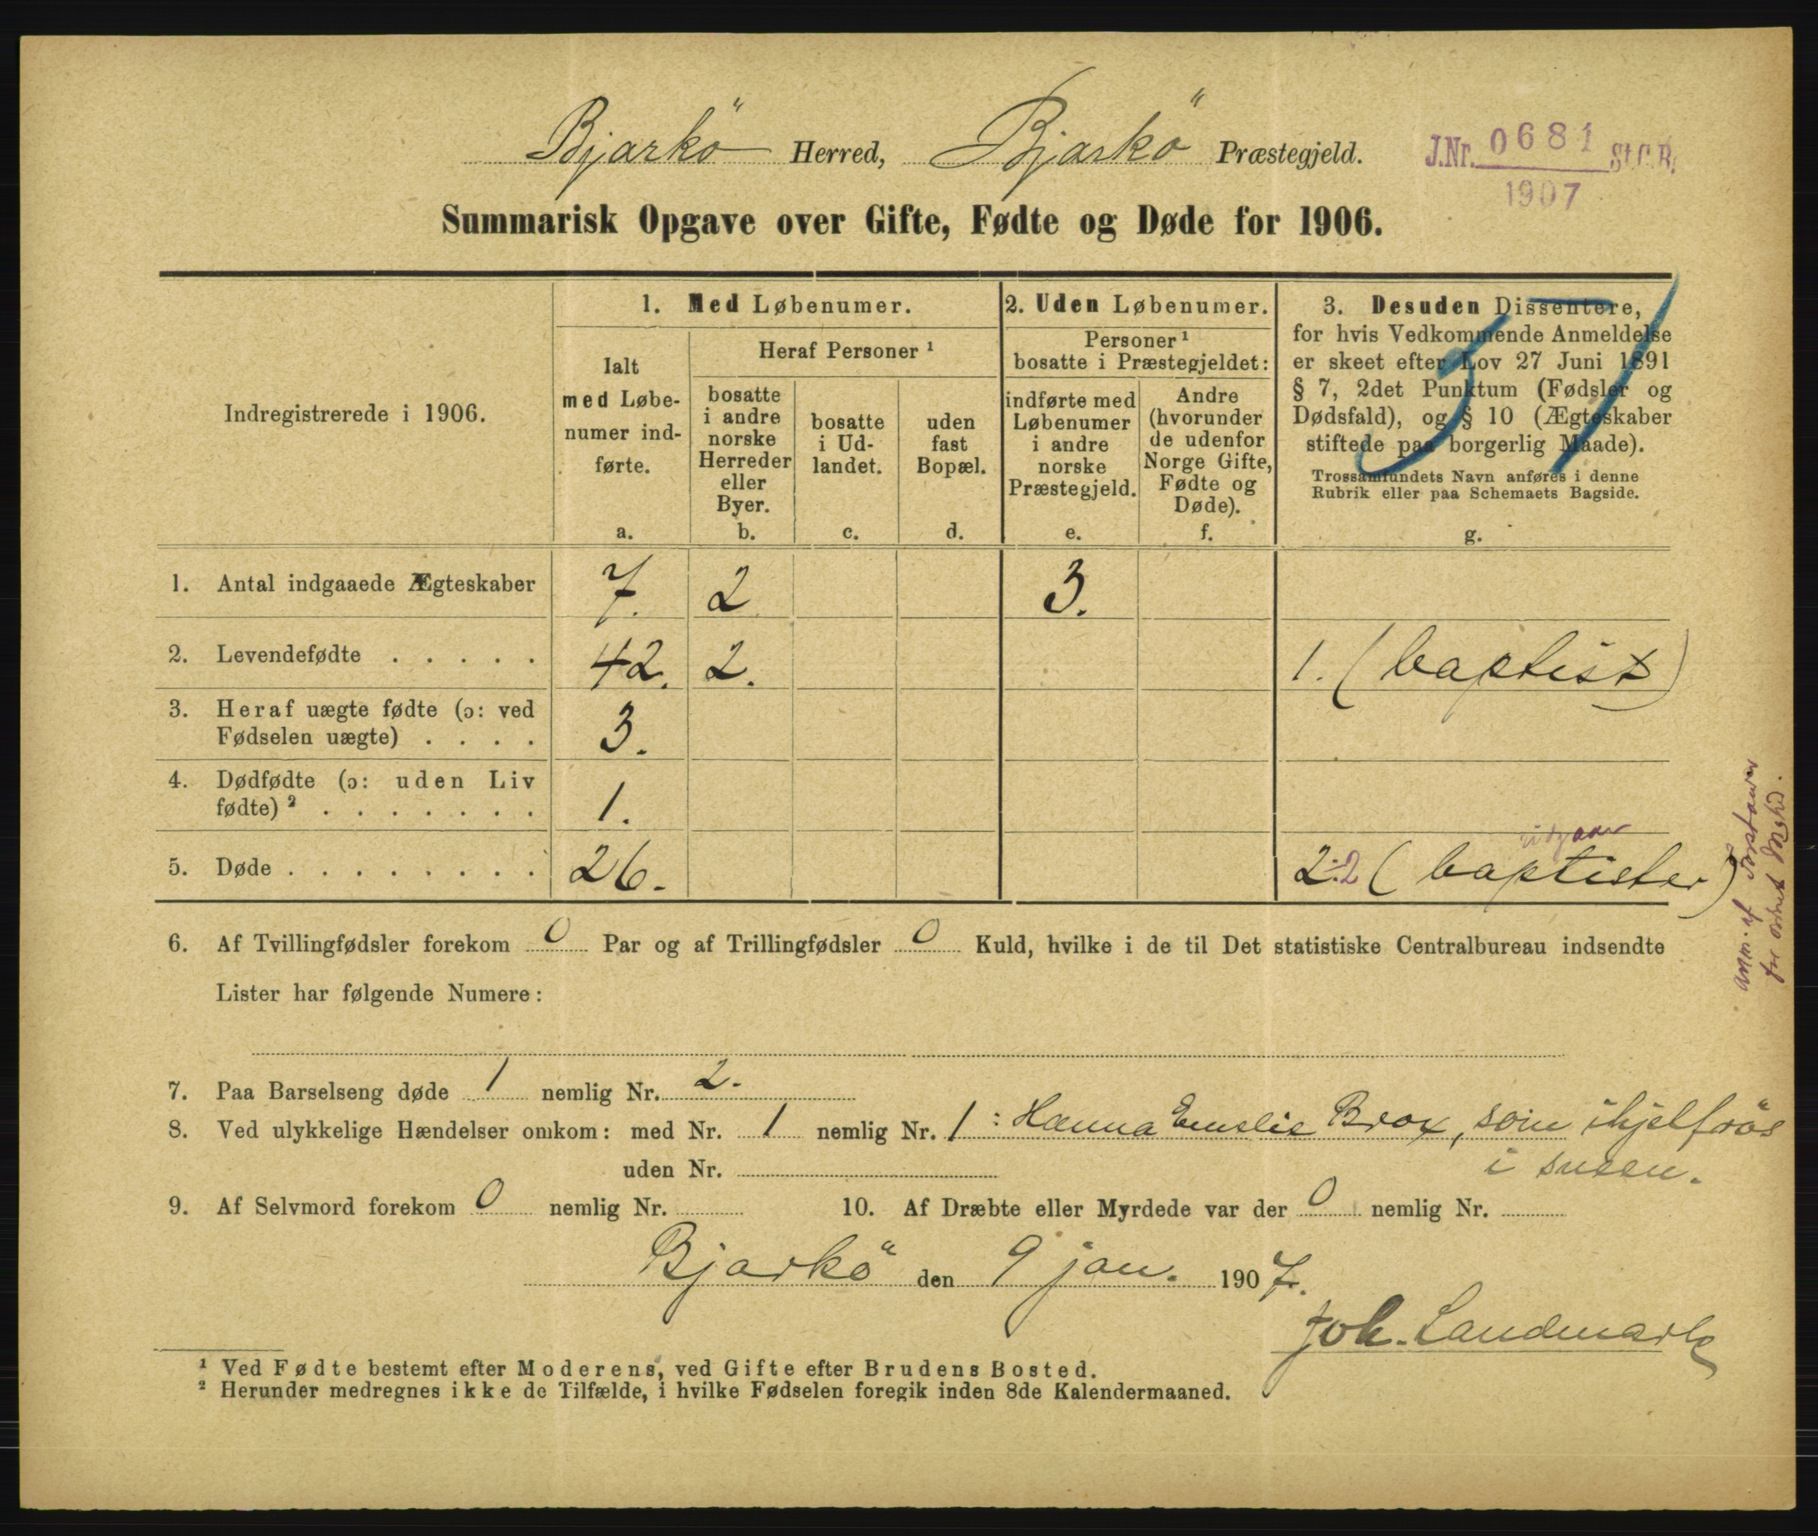 Bjarkö Herred, Bjarkö Præstegjeld.
J.Nr. 0681 St.C.B.
1907
Summarisk Opgave over Gifte, Fødte og Døde for 1906.
Indregistrerede i 1906.
1. Med Løbenumer.
Ialt
med Løbe-
numer ind-
førte.
a.
Heraf Personer ¹
bosatte
i andre
norske
Herreder
eller
Byer.
b.
bosatte
i Ud-
landet.
c.
uden
fast
Bopæl.
d.
2. Uden Løbenumer.
Personer ¹
bosatte i Præstegjeldet:
indførte med
Løbenumer
i andre
norske
Præstegjeld.
e.
Andre
(hvorunder
de udenfor
Norge Gifte,
Fødte og
Døde).
f.
3. Desuden Dissentere,
for hvis Vedkommende Anmeldelse
er skeet efter Lov 27 Juni 1891
§ 7, 2det Punktum (Fødsler og
Dødsfald), og § 10 (Ægteskaber
stiftede paa borgerlig Maade).
Trossamfundets Navn anføres i denne
Rubrik eller paa Schemaets Bagside.
g.
1. Antal indgaaede Ægteskaber 7. 2 3.
2. Levendefødte . . . . . 42. 2. 1. (baptist)
3. Heraf uægte fødte (ɔ: ved
Fødselen uægte) . . . . 3.
4. Dødfødte (ɔ: uden Liv
fødte) ² . . . . . . . 1.
udgaar
5. Døde . . . . . . . . 26. 2:2 (baptister)
anm. af
6. Af Tvillingfødsler forekom 0 Par og af Trillingfødsler 0 Kuld, hvilke i de til Det statistiske Centralbureau indsendte
Lister har følgende Numere:
7. Paa Barselseng døde 1 nemlig Nr. 2.
8. Ved ulykkelige Hændelser omkom: med Nr. 1 nemlig Nr. 1: Hanna Emelie Brox, som ihjelfrös
uden Nr. i sneen.
9. Af Selvmord forekom 0 nemlig Nr. 10. Af Dræbte eller Myrdede var der 0 nemlig Nr.
Bjarkö den 9 jan. 1907.
Joh. Landmark
¹ Ved Fødte bestemt efter Moderens, ved Gifte efter Brudens Bosted.
² Herunder medregnes ikke de Tilfælde, i hvilke Fødselen foregik inden 8de Kalendermaaned.